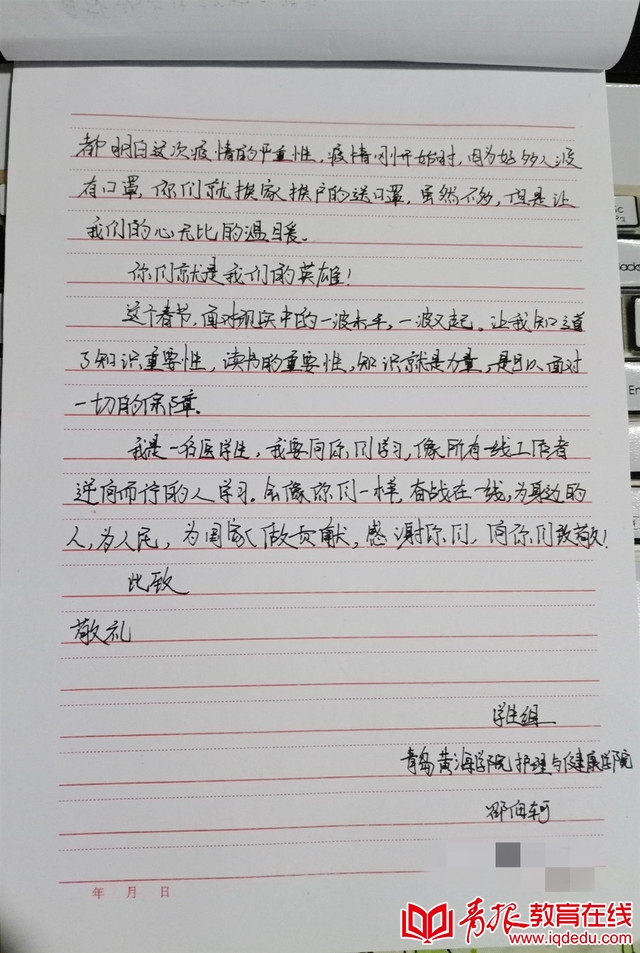 都明白这次疫情的严重性，疫情刚开始时，因为好多人没
有口罩，你们就挨家挨户的送口罩，虽然不多，但是让
我们的心无比的温暖。
你们就是我们的英雄！
这个春节，面对现实中的一波未平，一波又起。让我知道
了知识重要性，读书的重要性，知识就是力量，是可以面对
一切的保障。
我是一名医学生，我要向你们学习，像所有一线工作者
逆向而行的人学习。会像你们一样，奋战在一线，为身边的
人，为人民，为国家做贡献，感谢你们，向你们致敬！
此致
敬礼
学生组
青岛黄海学院护理与健康学院
邵伯轲
年 月 日
青报教育在线
www.iqdedu.com